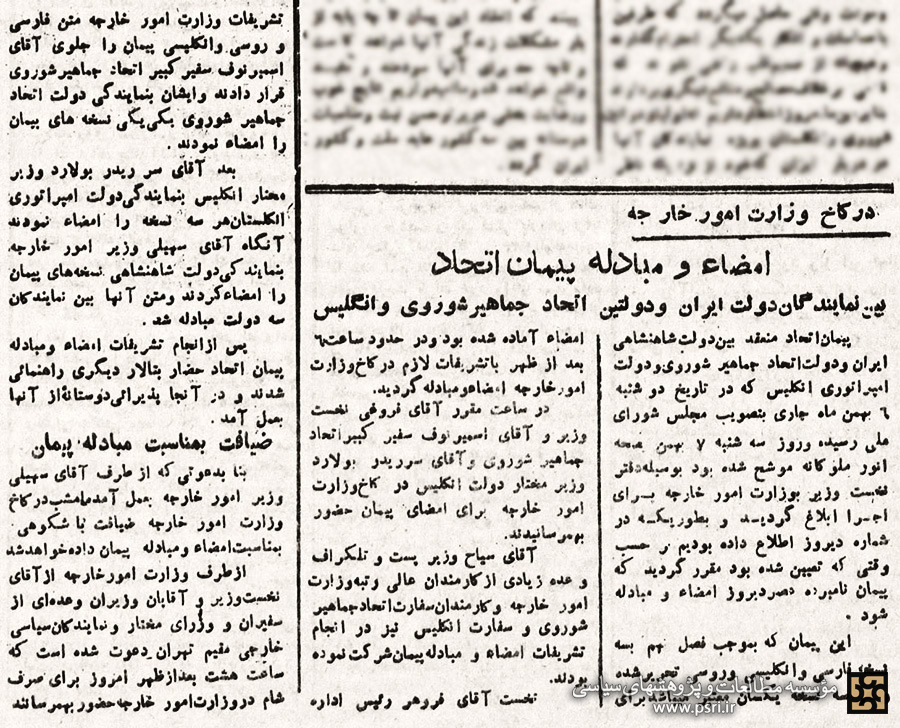 در کاخ وزارت امور خارجه
امضاء و مبادله پیمان اتحاد
بین نمایندگان دولت ایران و دولتین اتحاد جماهیر شوروی و انگلیس
پیمان اتحاد منعقد بین دولت شاهنشاهی
ایران و دولت اتحاد جماهیر شوروی و دولت
امپراتوری انگلیس که در تاریخ دو شنبه
٦ بهمن ماه جاری بتصویب مجلس شورای
ملی رسیده و روز سه شنبه ۷ بهمن بصحه
انور ملوکانه موشح شده بود بوسیله دفتر
نخست وزیر بوزارت امور خارجه برای
اجرا ابلاغ گردید و بطوریکه در
شماره دیروز اطلاع داده بودیم بر حسب
وقتی که تعیین شده بود مقرر گردید که
پیمان نامبرده عصر دیروز امضاء و مبادله
شود .
این پیمان که بموجب فصل نهم بسه
نسخه فارسی و انگلیسی و روسی تحریر شده
برای
امضاء آماده شده بود و در حدود ساعت ٦
بعد از ظهر با تشریفات لازم در کاخ وزارت
امور خارجه امضاء و مبادله گردید.
در ساعت مقرر آقای فروغی نخست
وزیر و آقای اسمیرنوف سفیر کبیر اتحاد
جماهیر شوروی و آقای سر ریدر بولارد
وزیر مختار دولت انگلیس در کاخ وزارت
امور خارجه برای امضای پیمان حضور
بهمرسانیدند.
آقای سیاح وزیر پست و تلگراف
و عده زیادی از کارمندان عالی رتبه وزارت
امور خارجه و کارمندان سفارت اتحاد جماهیر
شوروی و سفارت انگلیس نیز در انجام
تشریفات امضاء و مبادله پیمان شرکت نموده
بودند.
نخست آقای فروهر رئیس اداره
تشریفات وزارت امور خارجه متن فارسی
و روسی و انگلیسی پیمان را جلوی آقای
اسمیرنوف سفیر کبیر اتحاد جماهیر شوروی
قرار دادند و ایشان بنمایندگی دولت اتحاد
جماهیر شوروی یکی یکی نسخه های پیمان
را امضاء نمودند .
بعد آقای سر ریدر بولارد وزیر
مختار انگلیس بنمایندگی دولت امپراتوری
انگلستان هر سه نسخه را امضاء نمودند
آنگاه آقای سهیلی وزیر امور خارجه
بنمایندگی دولت شاهنشاهی نسخه های پیمان
را امضاء کردند و متن آنها بین نمایندگان
سه دولت مبادله شد .
پس از انجام تشریفات امضاء و مبادله
پیمان اتحاد حضار بتالار دیگری راهنمائی
شدند و در آنجا پذیرائی دوستانهٔ از آنها
بعمل آمد .
ضیافت بمناسبت مبادله پیمان
بنا بدعوتی که از طرف آقای سهیلی
وزیر امور خارجه بعمل آمده امشب در کاخ
وزارت امور خارجه ضیافت با شکوهی
بمناسبت امضاء و مبادله پیمان داده خواهد شد
از طرف وزارت امور خارجه از آقای
نخست وزیر و آقایان وزیران و عده‌ای از
سفیران و وزرای مختار و نمایندگان سیاسی
خارجی مقیم تهران دعوت شده است که
ساعت هشت بعد از ظهر امروز برای صرف
شام در وزارت امور خارجه حضور بهمرسانند
مؤسسه مطالعات و پژوهشهای سیاسی
www.psri.ir